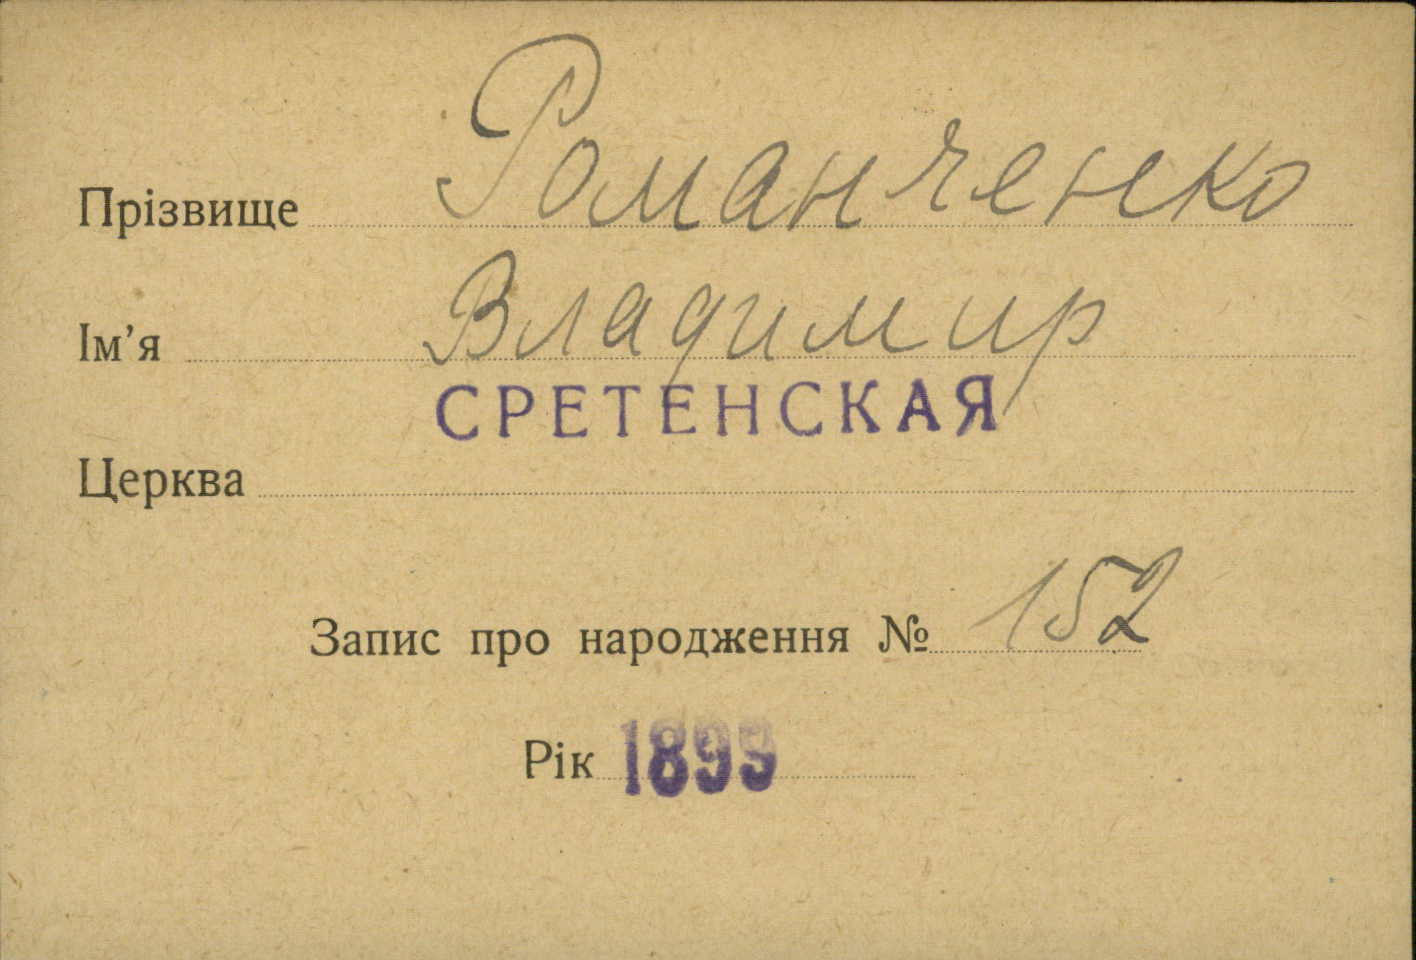 Прізвище Романченко
Ім'я Владимир
СРЕТЕНСКАЯ
Церква
Запис про народження № 152
Рік 1899